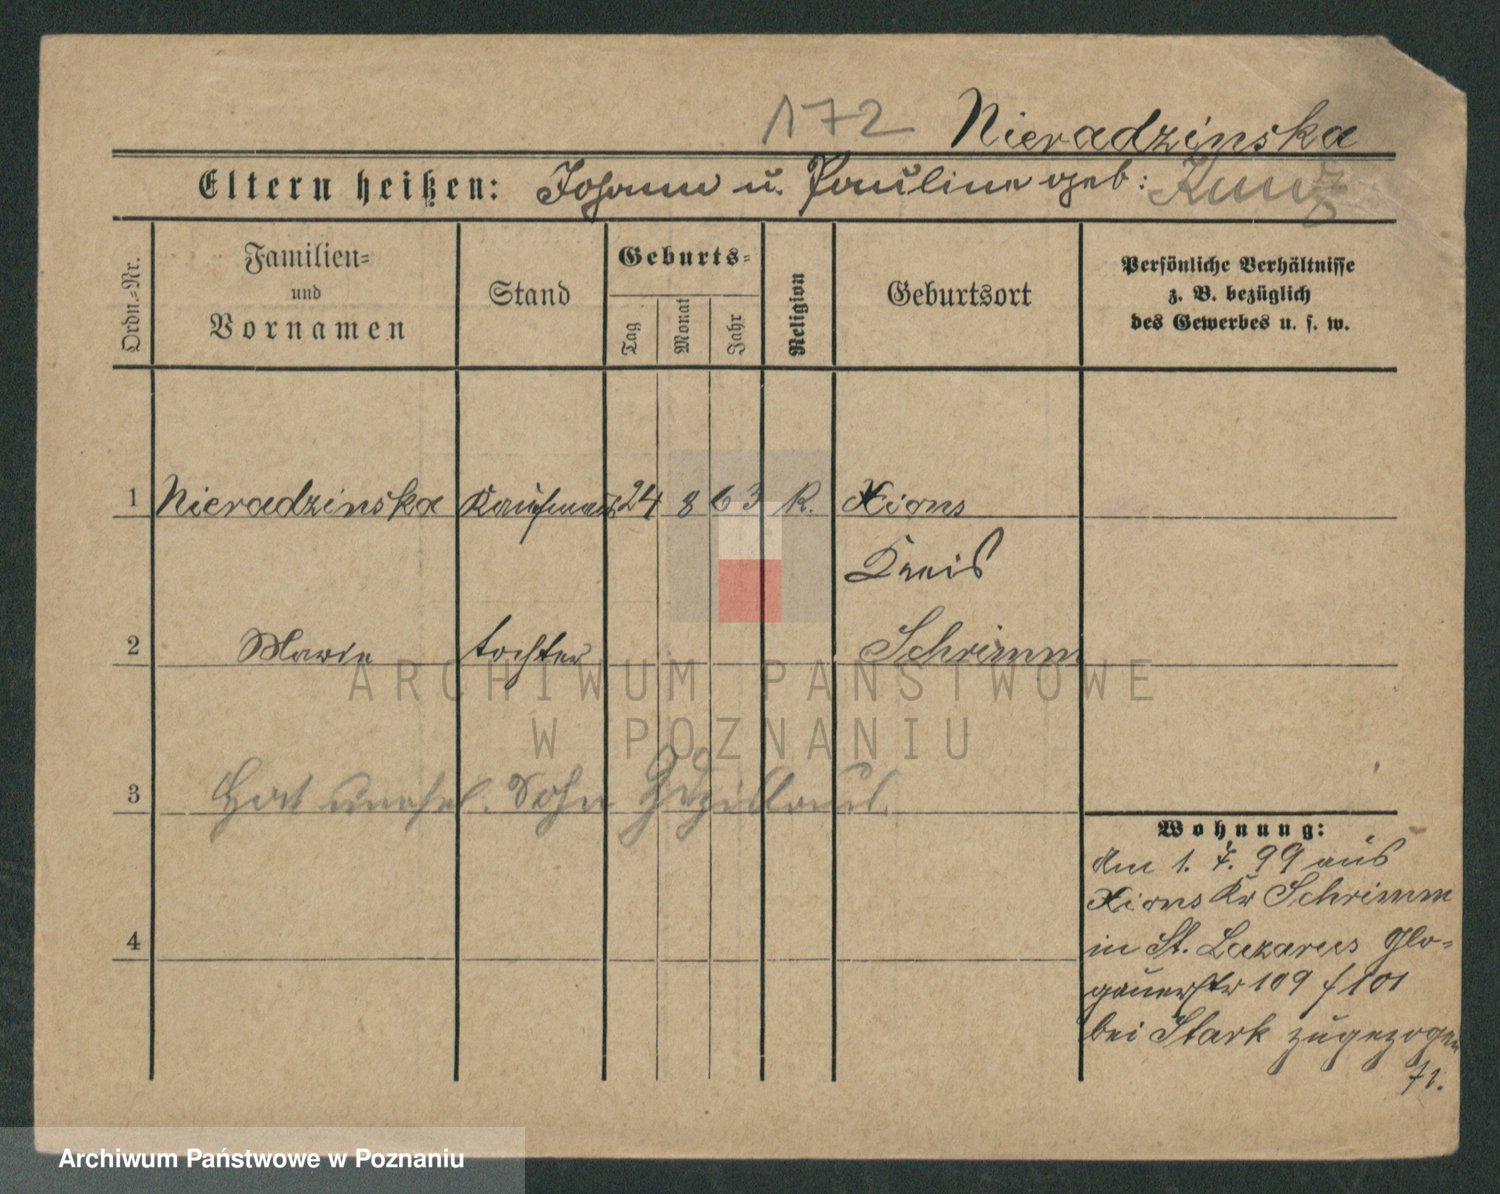 172 Nieradzinska
Eltern heißen: Johann u. Pauline geb:
Ordn.=Nr.
Familien=
und
Vornamen
Stand
Geburts=
Tag
Monat
Jahr
Religion
Geburtsort
Persönliche Verhältnisse
z. B. bezüglich
des Gewerbes u. s. w.
1 Nieradzinska Kaufmanns 24 8 63 K. Xions
Kreis
2 Marie tochter Schrimm
ARCHIWUM PAŃSTWOWE
W POZNANIU
3 Hat unehel. Sohn
Wohnung:
Am 1. 7. 99 aus
Xions Kr Schrimm
in St. Lazarus Glo=
gauerstr 109
bei Stark zugezogen
4
71.
Archiwum Państwowe w Poznaniu